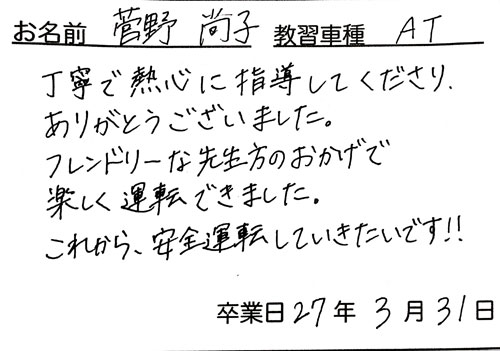 お名前 菅野 尚子 教習車種 AT
丁寧で熱心に指導してくださり、
ありがとうございました。
フレンドリーな先生方のおかげで
楽しく運転できました。
これから、安全運転していきたいです!!
卒業日 27年 3月 31日